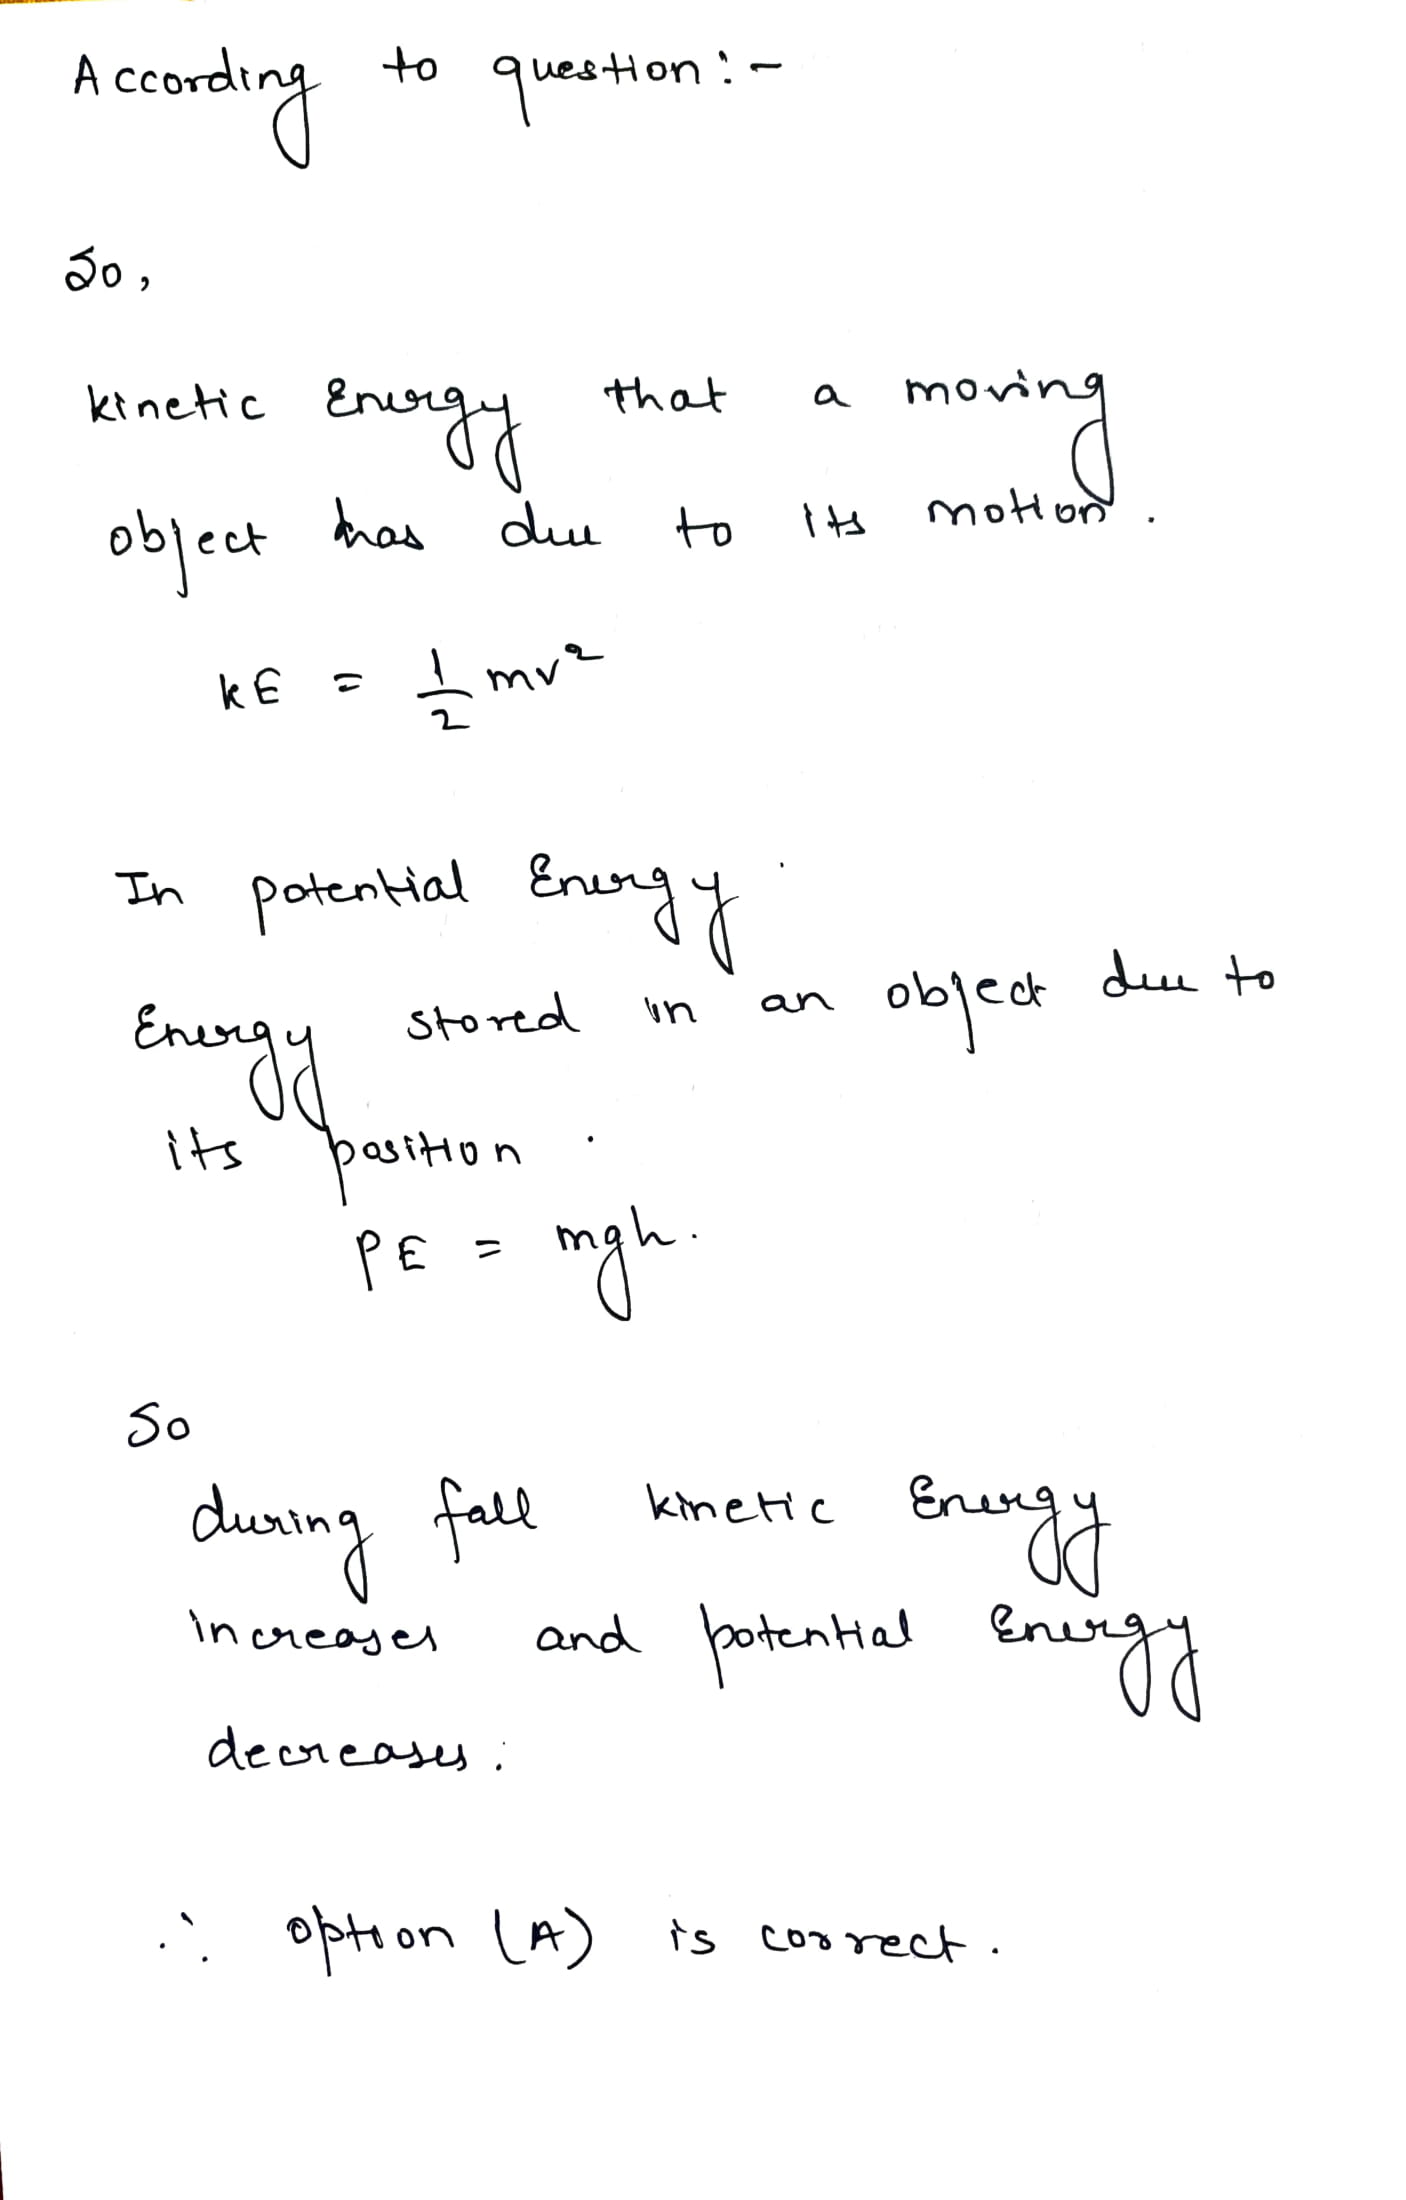 According to question :-
So,
kinetic Energy that a moving
object has due to its motion.
KE = 1/2 mv²
In potential Energy
Energy stored in an object due to
its position.
PE = mgh.
So
during fall kinetic Energy
increases and potential Energy
decreases.
∴ option (A) is correct.